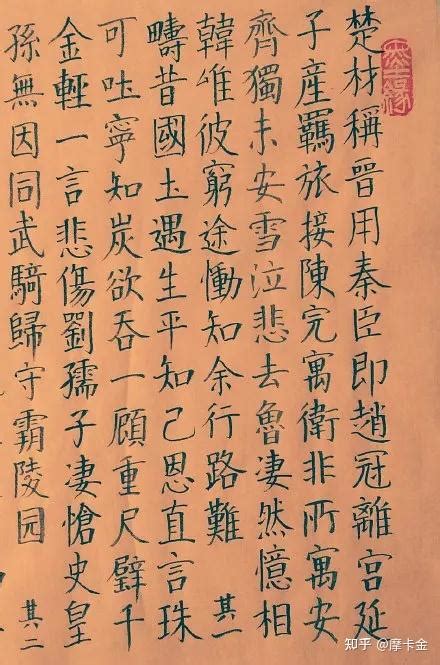 楚材稱晉用秦臣即趙冠離宮延
子産羈旅接陳完寓衛非所寓安
齊獨未安雪泣悲去魯淒然憶相
韓唯彼窮途慟知余行路難 其一
疇昔國土遇生平知己恩直言珠
可吐寧知炭欲吞一顧重尺璧千
金輕一言悲傷劉孺子淒愴史皇
孫無因同武騎歸守霸陵园 其二
知乎 @摩卡金